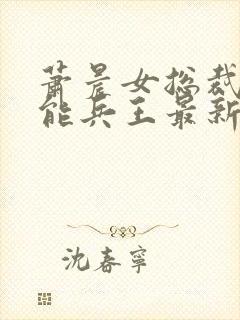 萧晨女总裁
能兵王最新
沈春宁